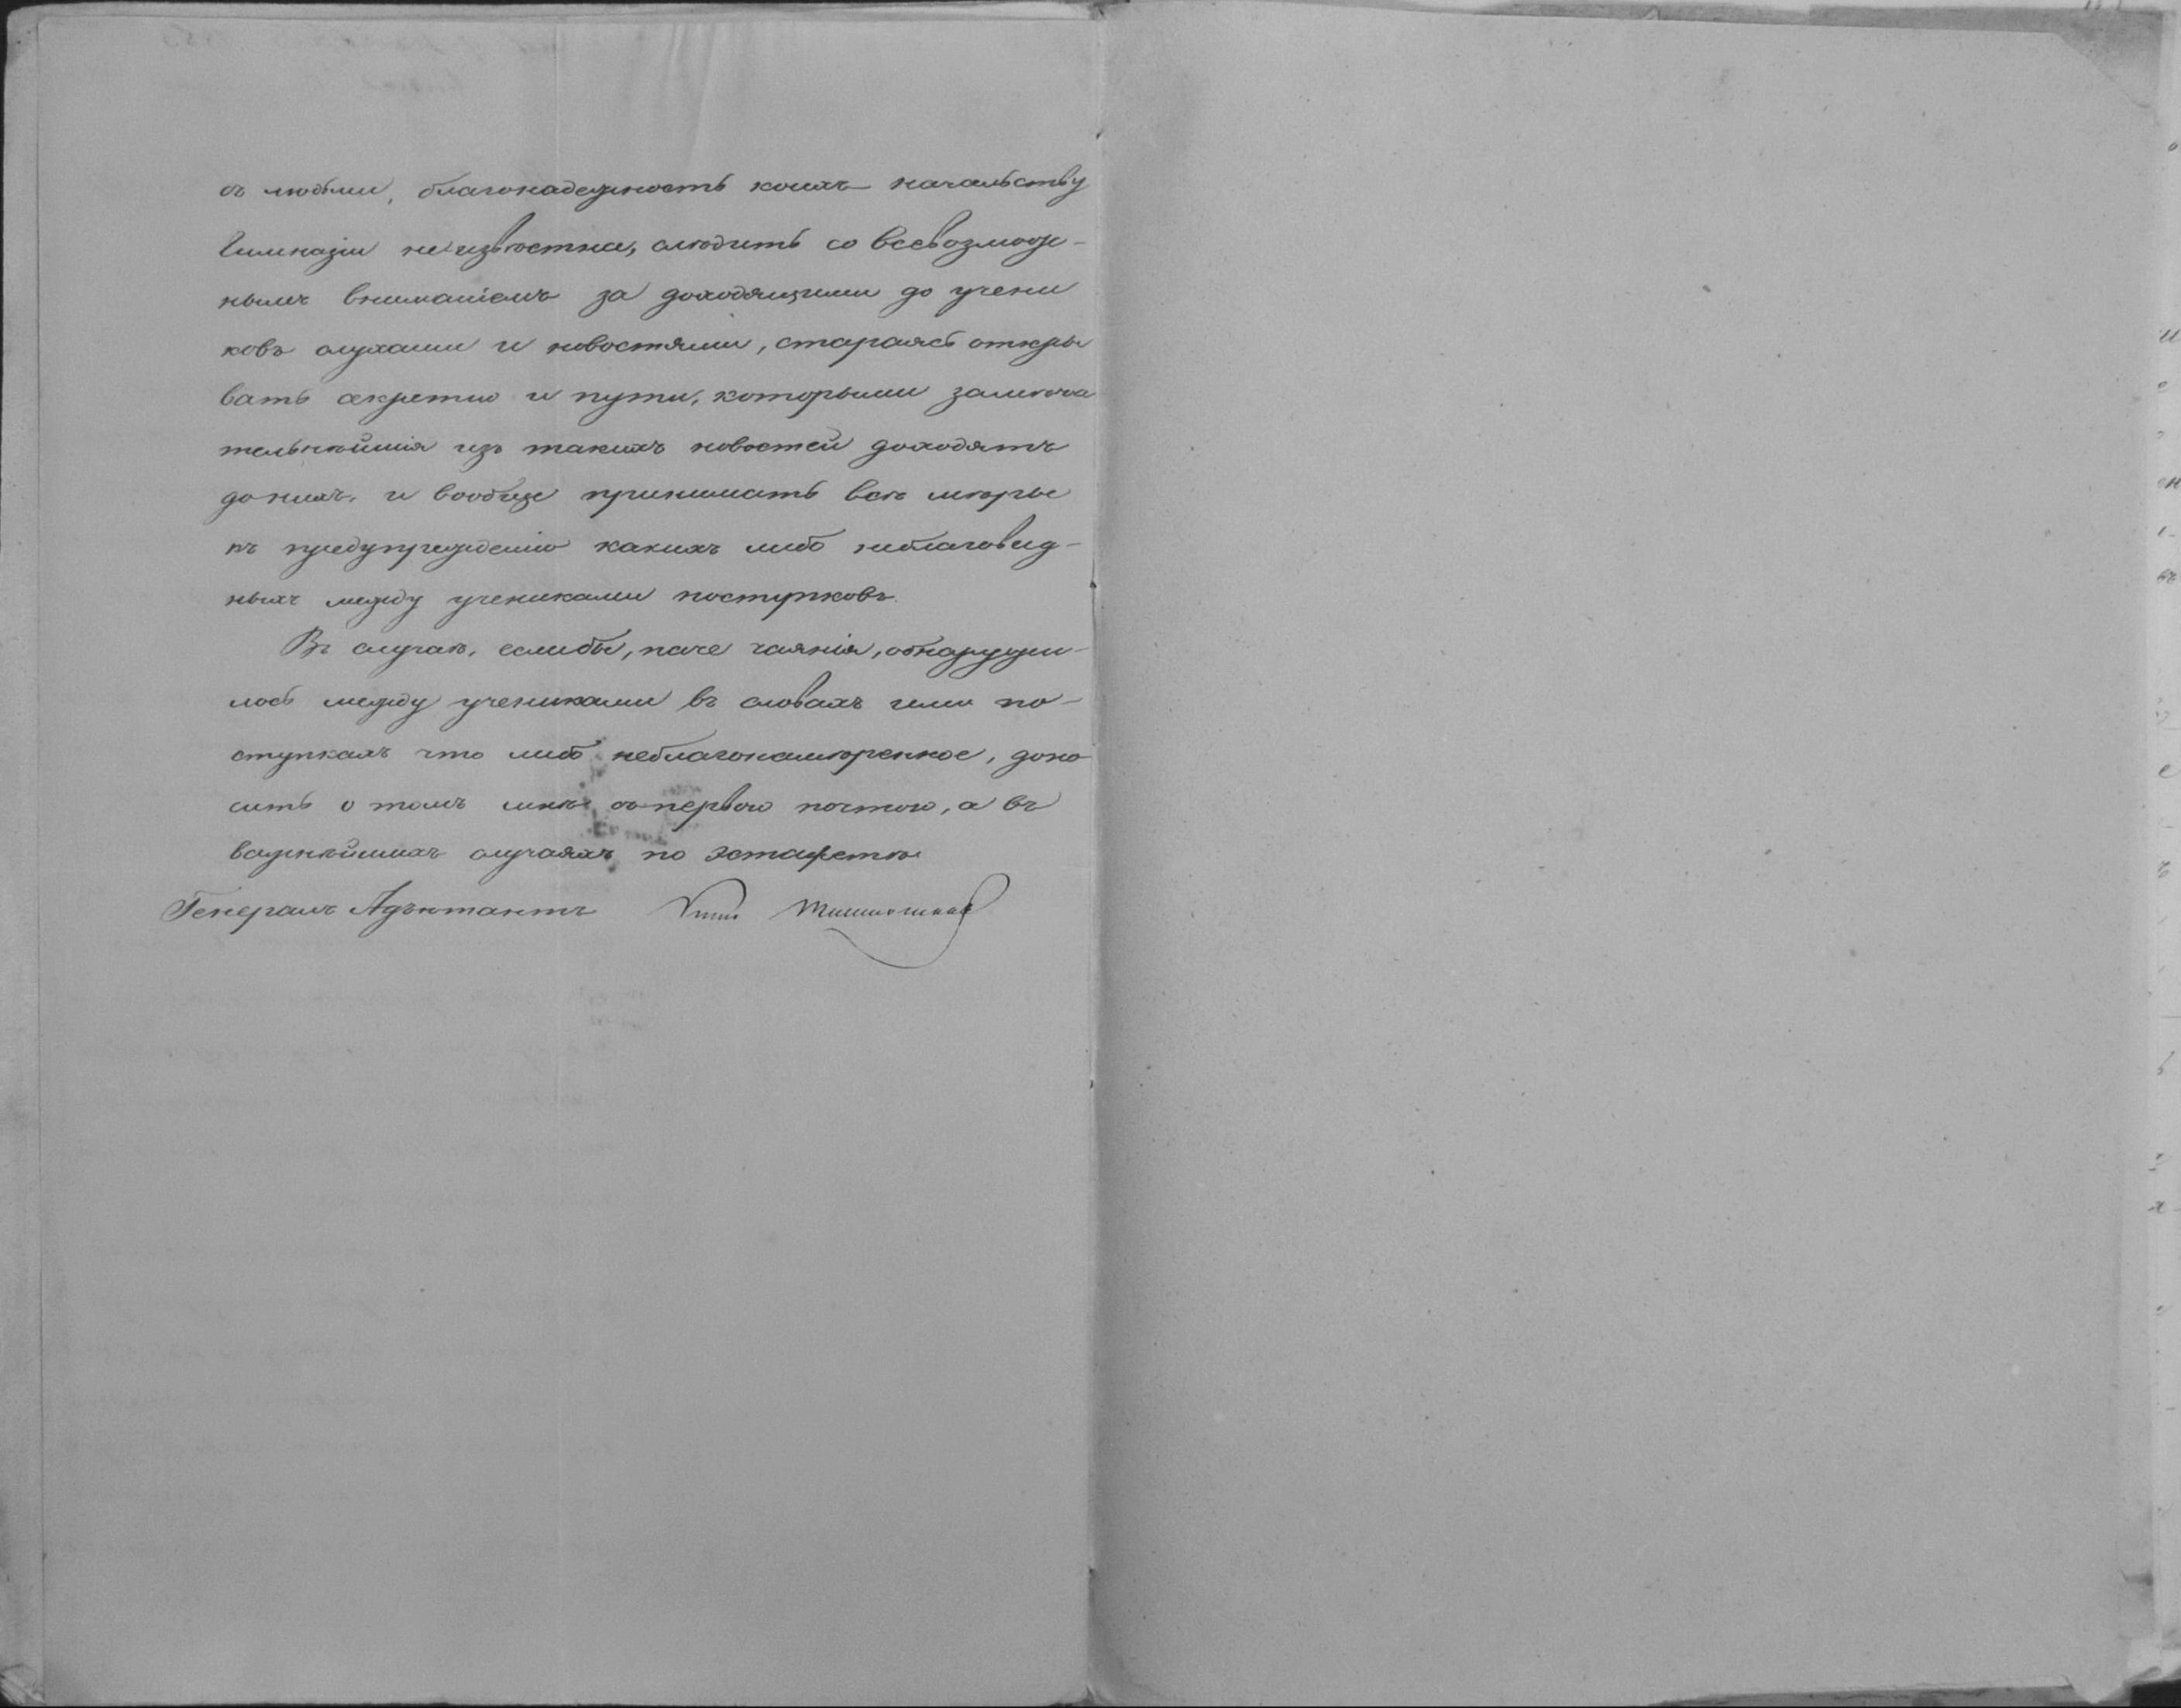 съ людьми, благонадежность коихъ начальству
Гимназіи неизвѣстна, слѣдить со всевозмож-
нымъ вниманіемъ за доходящими до учени
ковъ слухами и новостями, стараясь откры
вать секретно и пути, которыми замѣча
тельнѣйшія изъ такихъ новостей доходятъ
до нихъ, и вообще принимать всѣ мѣры
къ предупрежденію какихъ либо неблаговид-
ныхъ между учениками поступковъ.
Въ случаѣ, еслибы, паче чаянія, обнаружи-
лось между учениками въ словахъ или по-
ступкахъ что либо неблагонамѣренное, доно
сить о томъ мнѣ съ первою почтою, а въ
важнѣйшихъ случаяхъ по эстафетѣ
Генералъ Адъютантъ